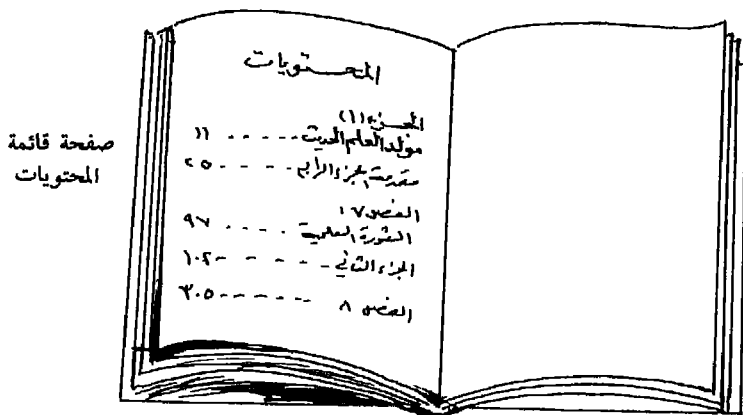 صفحة قائمة
المحتويات
المحتويات
الجزء (١)
مولد العلم الحديث - - - - - ١١
مقدمة الجزء الرابع - - - - - ٢٥
الفصل ٧:
الثورة العلمية - - - - ٩٧
الجزء الثاني - - - - - ١٠٢
الفصل ٨ - - - - - - ٣٠٥